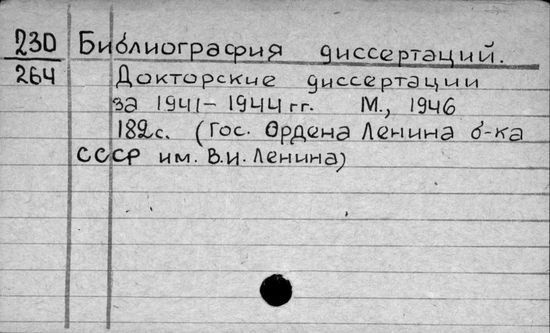 230 Библиография диссертаций.
264 Докторские диссертации
за 1941-1944 гг. М., 1946
182с. (Гос. Ордена Ленина б-ка
СССР им. В.И. Ленина)